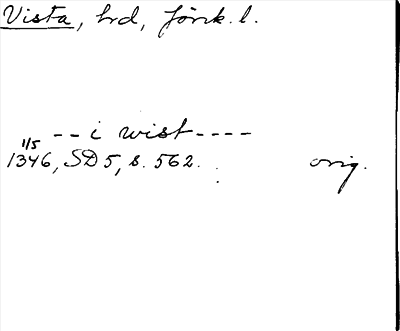 Vista, hrd, Jönk. l.
-- i wist ----
1/5
1346, SD 5, s. 562. orig.